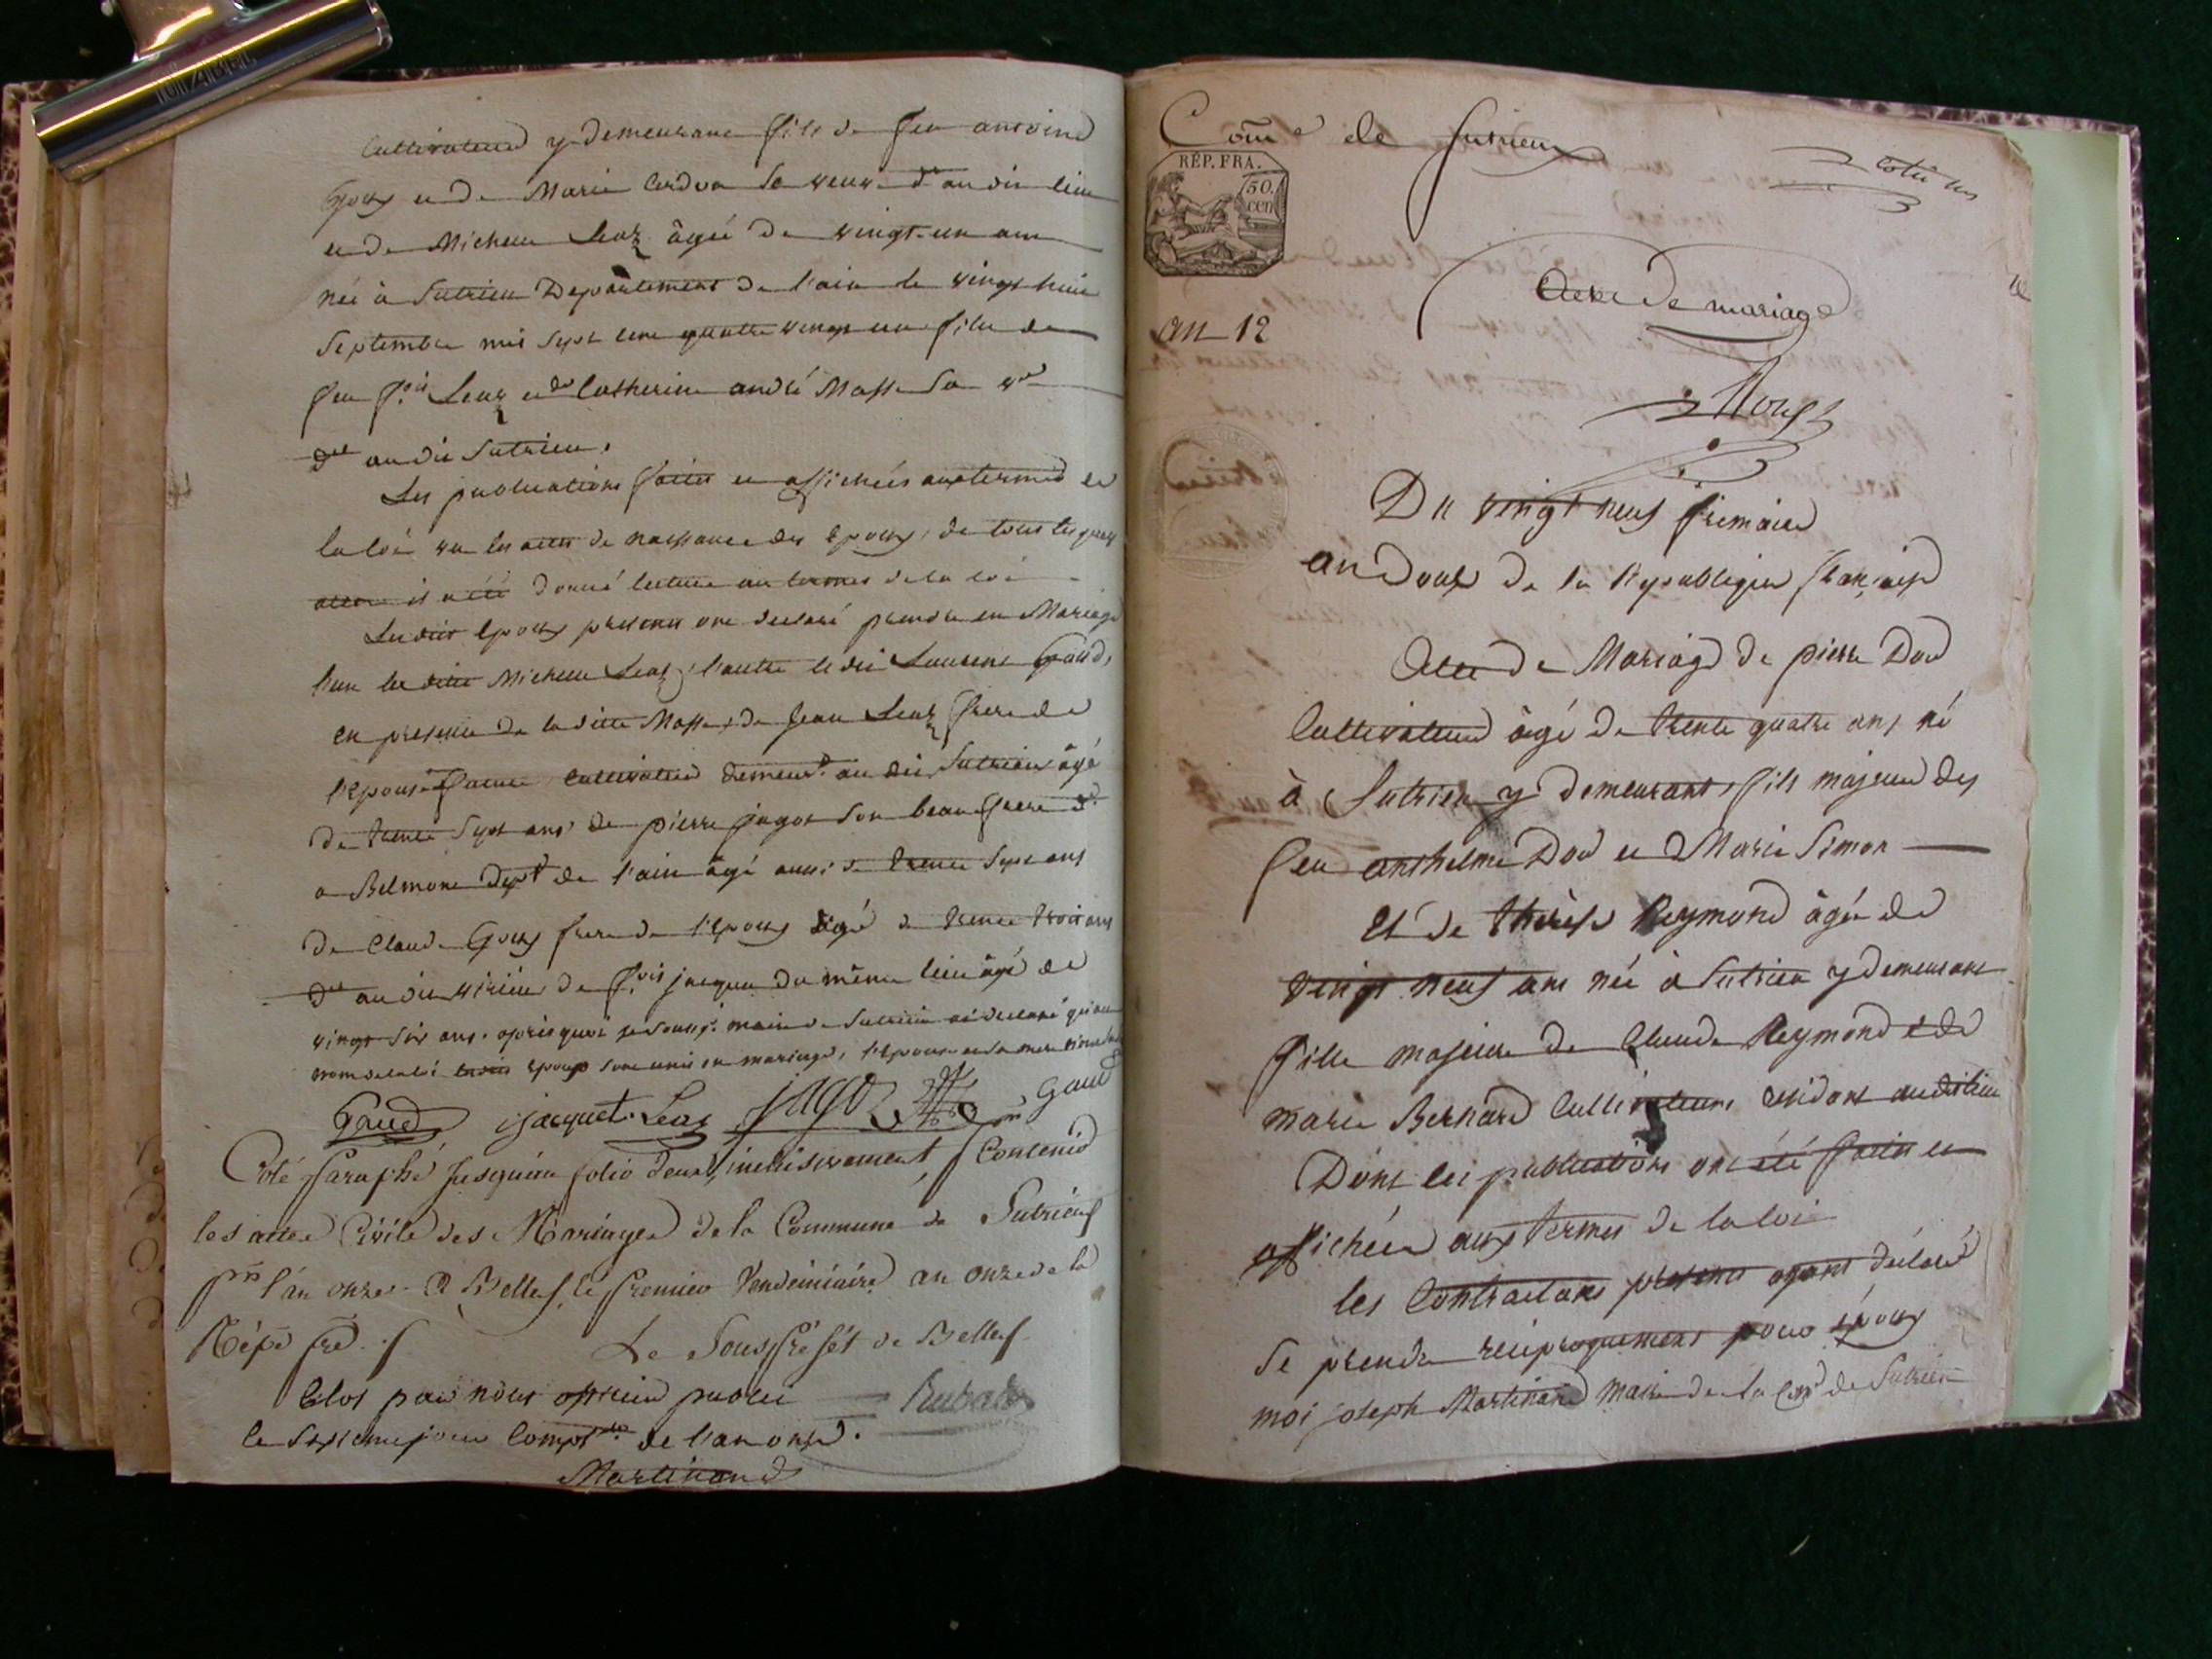 Cultivateur y demeurant fils de feu antoine
et de Marie Cerdon sa veuve dte au dit lieu
et de Michelle Leaz âgée de vingt-un ans
née à Sutrieu Departement de l'ain le vingt huit
Septembre mil sept cent quatre vingt un fille de
feu fois Leaz et de Catherine andré Masse sa ve
dte au dit Sutrieu.
Les publications faites et affichées aux termes de
la loi vu les actes de naissance des Epoux, de tous lesquels
actes il a été donné lecture aux termes de la loi
Lesdits Epoux présens ont déclaré prendre en Mariage
l'un la ditte Michelle Leaz, l'autre le dit Laurent Gaud,
en présence de la ditte Masse, de Jean Leaz frere de
l'Epouse cultivateur demeurt au dit Sutrieu âgé
de trente sept ans, de pierre jagot son beau frere dt
a Belmont dept de l'ain âgé aussi de trente sept ans
de Claude frere de l'Epoux âgé de trente trois ans
dt au dit virieu de fois jacquet du même lieu âgé de
vingt six ans. après quoi je soussé maire de Sutrieu ai déclaré qu'au
nom de la loi lesdits époux sont unis en mariage, l'épouse et sa mere
Gaud jacquet Leaz JAGO Gaud
Coté Paraphé jusqu'au folio deux, inclusivement, Contenir
les actes Civils des Mariages de la Commune de Sutrieu
pr l'an onze. A Belley le premier Vendemiaire an onze de la
Répe fre.
Le Sousprefét de Belley
Clos par nous officier public
le sixieme jour Complre de l'an onze.
Martinand
Come de Sutrieu
Coté un
RÉP. FRA.
50.
cen
Acte de mariage
an 12
Du vingt neuf frimaire
an Douze de la République française
Acte de Mariage de pierre Dod
Cultivateur âgé de trente quatre ans, né
à Sutrieu y demeurant, fils majeur des
feu anthelme Dod et Marie Simon
Et de thérèse Reymond âgée de
vingt neuf ans née à Sutrieu y demeurant
fille majeure de Claude Reymond et de
marie Bernard Cultivateurs résidant audit lieu
Dont les publications ont été faites et
affichées aux termes de la loi
les Contractans présens ayant déclaré
se prendre réciproquement pour époux
moi joseph Martinand Maire de la Come de Sutrieu